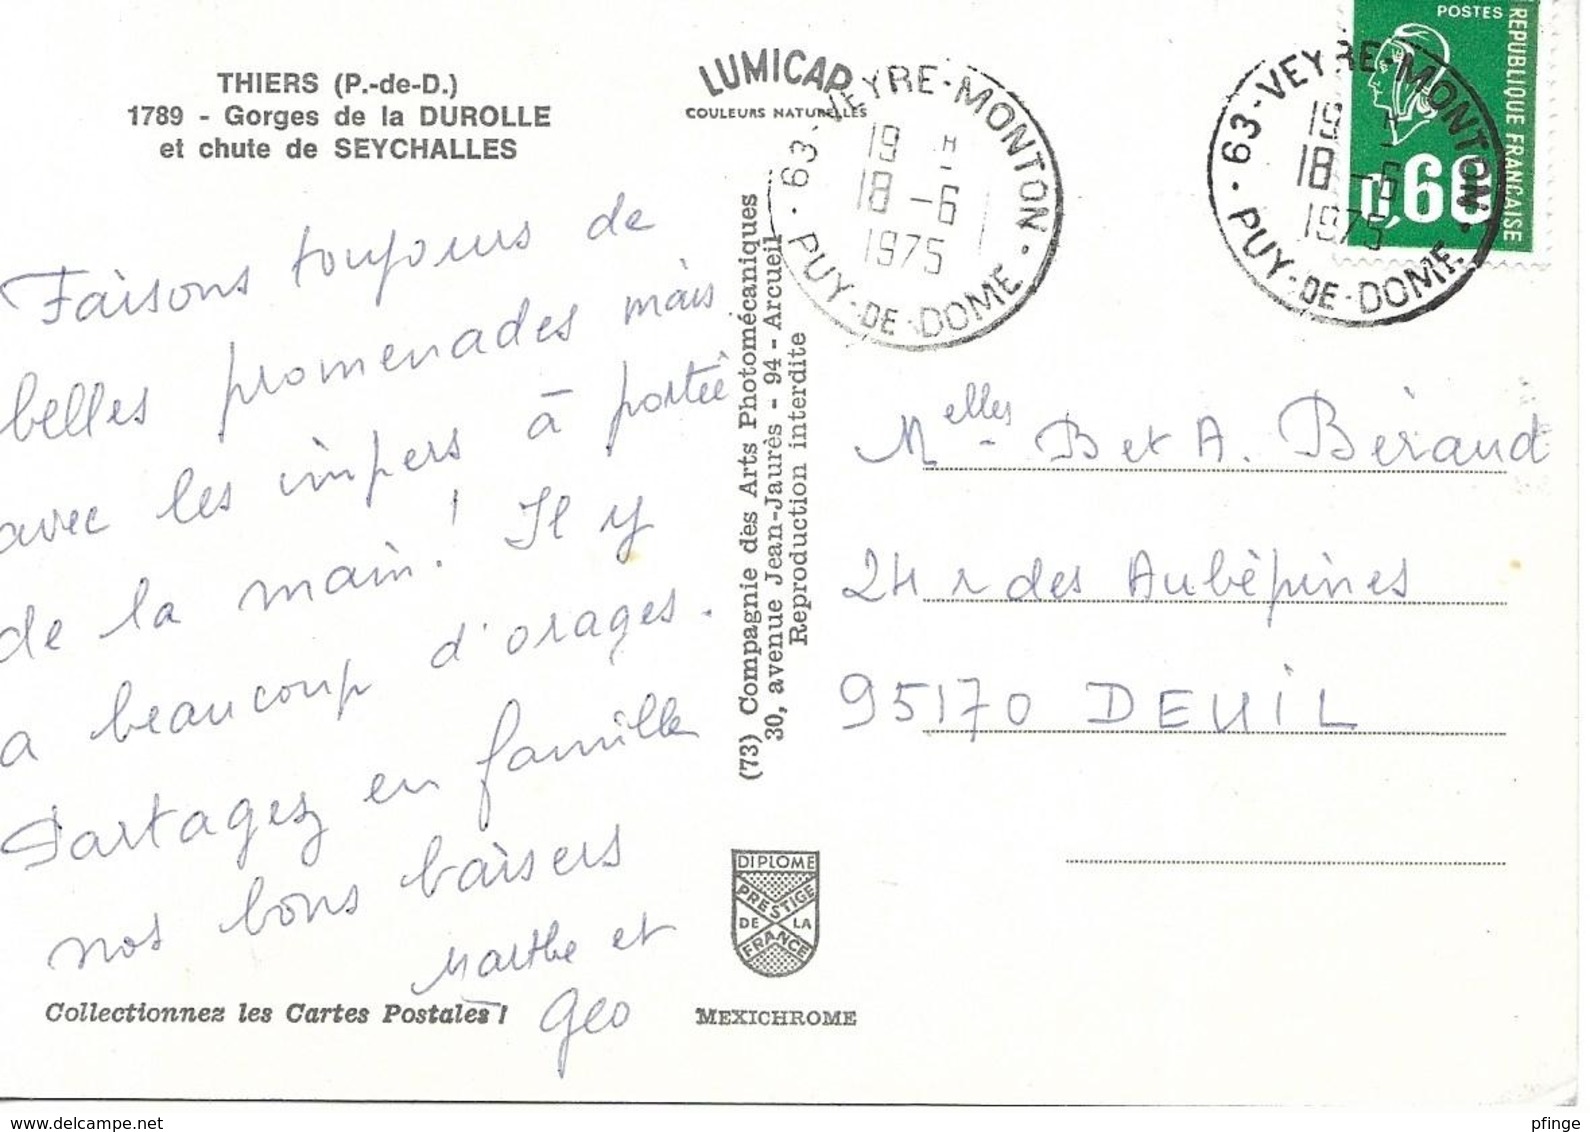 THIERS (P.-de-D.)
1789 - Gorges de la DUROLLE
et chute de SEYCHALLES
Faisons toujours de
belles promenades mais
avec les impers à portée
de la main! Il y
a beaucoup d'orages.
Partagez en famille
nos bons baisers
Marthe et
Geo
Collectionnez les Cartes Postales !
LUMICAP
COULEURS NATURELLES
(73) Compagnie des Arts Photomécaniques
30, avenue Jean-Jaurès - 94 - Arcueil
Reproduction interdite
DIPLOME
PRESTIGE
DE LA
FRANCE
MEXICHROME
63-VEYRE-MONTON
19 H
18 -6
1975
PUY-DE-DOME
63-VEYRE-MONTON
19 H
18 -6
1975
PUY-DE-DOME
POSTES
REPUBLIQUE FRANÇAISE
0,60
Melles B et A. Béraud
24 r des Aubépines
95170 DEUIL
www.delcampe.net
pfinge